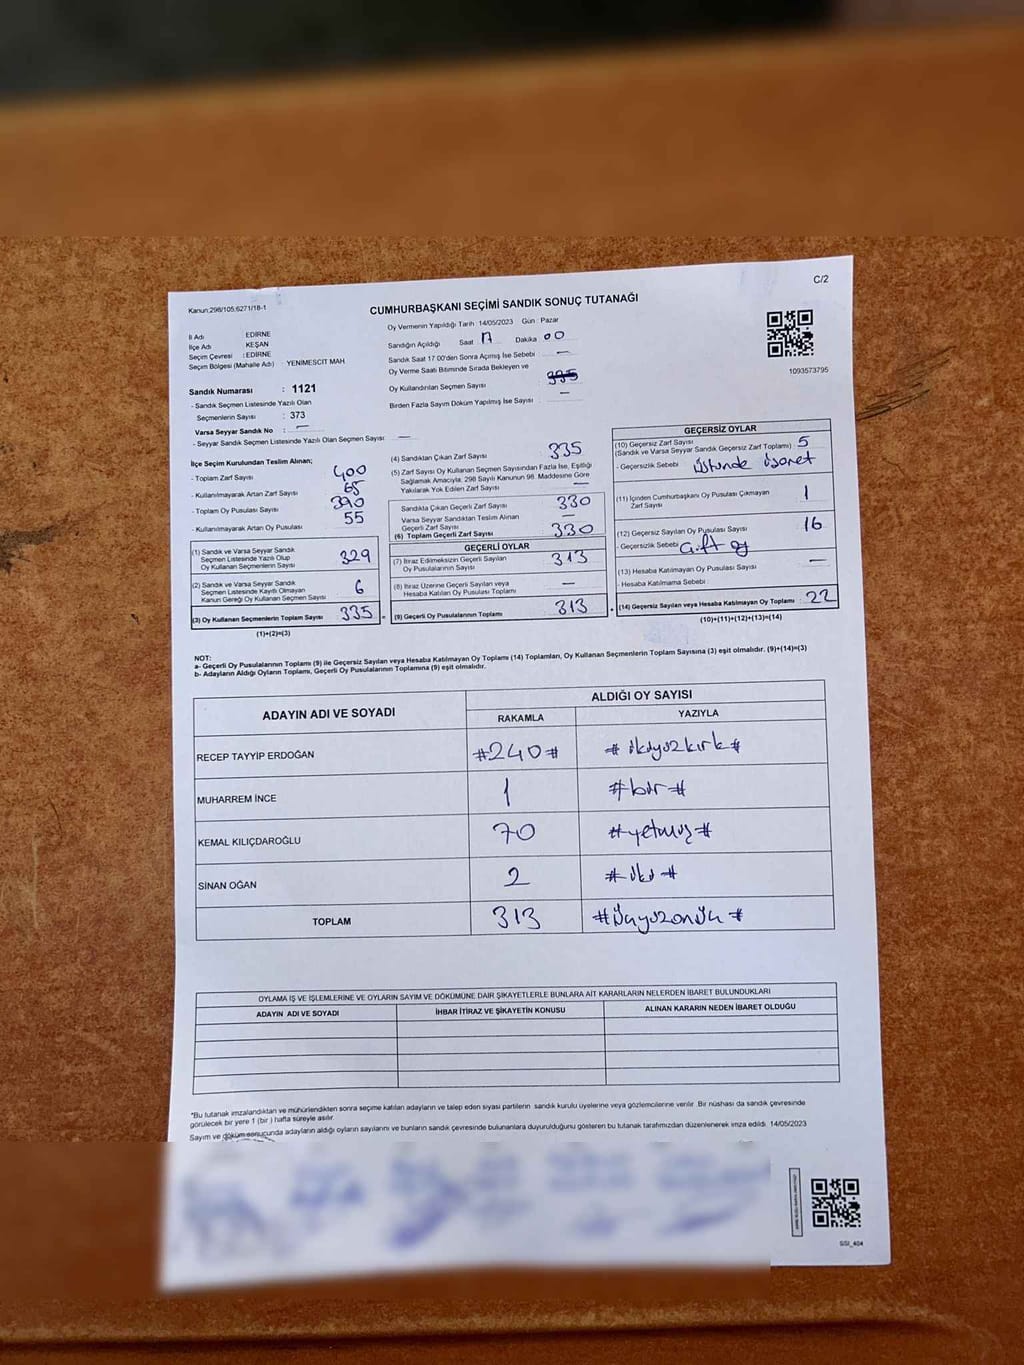 C/2
Kanun;298/105;6271/18-1
CUMHURBAŞKANI SEÇİMİ SANDIK SONUÇ TUTANAĞI
1093573795
İl Adı EDİRNE
İlçe Adı KEŞAN
Seçim Çevresi : EDİRNE
Seçim Bölgesi (Mahalle Adı) : YENİMESCİT MAH
Sandık Numarası : 1121
- Sandık Seçmen Listesinde Yazılı Olan
Seçmenlerin Sayısı : 373
Varsa Seyyar Sandık No : —
- Seyyar Sandık Seçmen Listesinde Yazılı Olan Seçmen Sayısı —
Oy Vermenin Yapıldığı Tarih : 14/05/2023 Gün : Pazar
Sandığın Açıldığı Saat 17 Dakika 00
Sandık Saat 17.00'den Sonra Açımış İse Sebebi : —
Oy Verme Saati Bitiminde Sırada Bekleyen ve
Oy Kullandırılan Seçmen Sayısı : 335
Birden Fazla Sayım Döküm Yapılmış İse Sayısı : —
İlçe Seçim Kurulundan Teslim Alınan;
- Toplam Zarf Sayısı 400
- Kullanılmayarak Artan Zarf Sayısı 65
- Toplam Oy Pusulası Sayısı 390
- Kullanılmayarak Artan Oy Pusulası 55
(1) Sandık ve Varsa Seyyar Sandık
Seçmen Listesinde Yazılı Olup
Oy Kullanan Seçmenlerin Sayısı 329
(2) Sandık ve Varsa Seyyar Sandık
Seçmen Listesinde Kayıtlı Olmayan
Kanun Gereği Oy Kullanan Seçmen Sayısı 6
(3) Oy Kullanan Seçmenlerin Toplam Sayısı 335 =
(1)+(2)=(3)
(4) Sandıktan Çıkan Zarf Sayısı 335
(5) Zarf Sayısı Oy Kullanan Seçmen Sayısından Fazla İse, Eşitliği
Sağlamak Amacıyla; 298 Sayılı Kanunun 98. Maddesine Göre
Yakılarak Yok Edilen Zarf Sayısı —
Sandıkta Çıkan Geçerli Zarf Sayısı 330
Varsa Seyyar Sandıktan Teslim Alınan
Geçerli Zarf Sayısı —
(6) Toplam Geçerli Zarf Sayısı 330
GEÇERLİ OYLAR
(7) İtiraz Edilmeksizin Geçerli Sayılan
Oy Pusulalarının Sayısı 313
(8) İtiraz Üzerine Geçerli Sayılan veya
Hesaba Katılan Oy Pusulası Toplamı —
(9) Geçerli Oy Pusulalarının Toplamı 313 +
GEÇERSİZ OYLAR
(10) Geçersiz Zarf Sayısı 5
(Sandık ve Varsa Seyyar Sandık Geçersiz Zarf Toplamı)
- Geçersizlik Sebebi üstünde işaret
(11) İçinden Cumhurbaşkanı Oy Pusulası Çıkmayan
Zarf Sayısı 1
(12) Geçersiz Sayılan Oy Pusulası Sayısı 16
- Geçersizlik Sebebi Çift oy
(13) Hesaba Katılmayan Oy Pusulası Sayısı —
- Hesaba Katılmama Sebebi
(14) Geçersiz Sayılan veya Hesaba Katılmayan Oy Toplamı : 22
(10)+(11)+(12)+(13)=(14)
NOT:
a- Geçerli Oy Pusulalarının Toplamı (9) ile Geçersiz Sayılan veya Hesaba Katılmayan Oy Toplamı (14) Toplamları, Oy Kullanan Seçmenlerin Toplam Sayısına (3) eşit olmalıdır. (9)+(14)=(3)
b- Adayların Aldığı Oyların Toplamı, Geçerli Oy Pusulalarının Toplamına (9) eşit olmalıdır.
ADAYIN ADI VE SOYADI ALDIĞI OY SAYISI
RAKAMLA YAZIYLA
RECEP TAYYİP ERDOĞAN #240# #ikiyüzkırk#
MUHARREM İNCE 1 #bir#
KEMAL KILIÇDAROĞLU 70 #yetmiş#
SİNAN OĞAN 2 #iki#
TOPLAM 313 #Üçyüzonüç#
OYLAMA İŞ VE İŞLEMLERİNE VE OYLARIN SAYIM VE DÖKÜMÜNE DAİR ŞİKAYETLERLE BUNLARA AİT KARARLARIN NELERDEN İBARET BULUNDUKLARI
ADAYIN ADI VE SOYADI İHBAR İTİRAZ VE ŞİKAYETİN KONUSU ALINAN KARARIN NEDEN İBARET OLDUĞU
*Bu tutanak imzalandıktan ve mühürlendikten sonra seçime katılan adayların ve talep eden siyasi partilerin sandık kurulu üyelerine veya gözlemcilerine verilir. Bir nüshası da sandık çevresinde
görülecek bir yere 1 (bir ) hafta süreyle asılır.
Sayım ve döküm sonucunda adayların aldığı oyların sayılarını ve bunların sandık çevresinde bulunanlara duyurulduğunu gösteren bu tutanak tarafımızdan düzenlenerek imza edildi. 14/05/2023
SSI_404